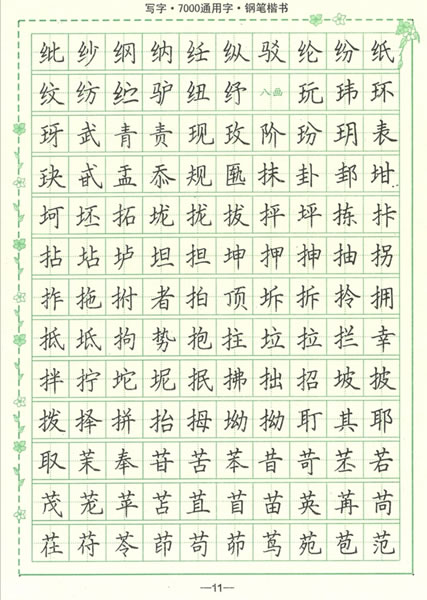 写字·7000通用字·钢笔楷书
纰纱纲纳纴纵驳纶纷纸
纹纺纻驴纽纾八画玩玮环
玡武青责现玫玠玢玥表
玦甙盂忝规匦抹卦邽坩
坷坯拓垅拢拔抨坪拣拤
拈坫垆坦担坤押抻抽拐
拃拖拊者拍顶坼拆拎拥
抵坻拘势抱拄垃拉拦幸
拌拧坨坭抿拂拙招坡披
拨择拚抬拇坳拗耵其耶
取茉奉苷苦苯昔苛苤若
茂茏苹苫苴苜苗英苒苘
茌苻苓茚苟茆茑苑苞范
—11—